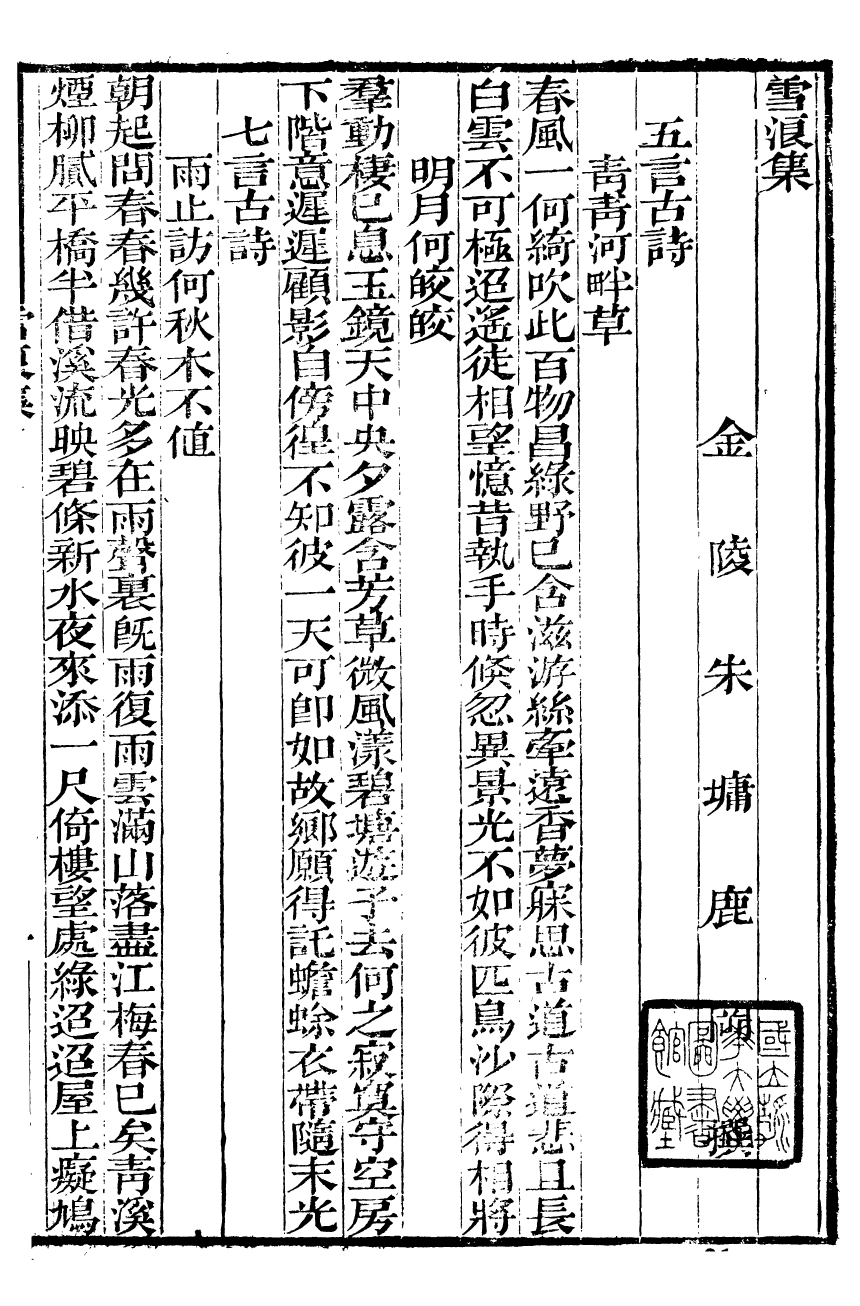 雪浪集
金陵朱墉鹿
五言古詩
青青河畔草
春風一何綺吹此百物昌綠野已含滋游絲牽遠香夢寐思古道古道悲且長
白雲不可極迢遙徒相望憶昔執手時倏忽異景光不如彼匹鳥沙際得相將
明月何皎皎
羣動棲已息玉鏡天中央夕露含芳草微風漾碧塘遊子去何之寂寞守空房
下階意遲遲顧影自傍徨不知彼一天可卽如故鄉願得託蟾蜍衣帶隨末光
七言古詩
雨止訪何秋水不値
朝起問春春幾許春光多在雨聲裏旣雨復雨雲滿山落盡江梅春已矣青溪
煙柳膩平橋半借溪流映碧條新水夜來添一尺倚樓望處綠迢迢屋上癡鳩